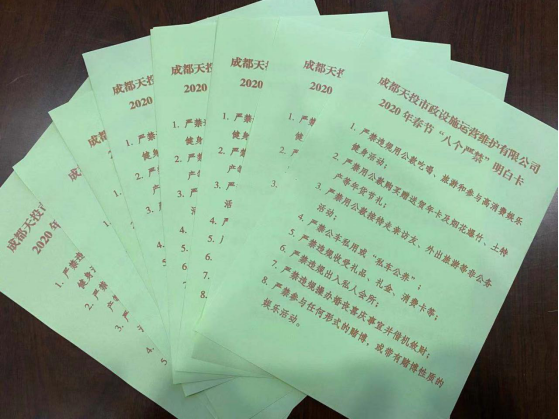 成都天投市政设施运营维护有限公司
2020年春节“八个严禁”明白卡
1. 严禁违规用公款吃喝、旅游和参与高消费娱乐
健身活动;
2. 严禁用公款购买赠送贺年卡及烟花爆竹、土特
产等年货节礼;
3. 严禁用公款接待走亲访友、外出旅游等非公务
活动;
4. 严禁公车私用或“私车公养”;
5. 严禁违规收受礼品、礼金、消费卡等;
6. 严禁违规出入私人会所;
7. 严禁违规操办婚丧喜庆事宜并借机敛财;
8. 严禁参与任何形式的赌博，或带有赌博性质的
娱乐活动。
成都天投
2020
成都天投
2020
成都天投
2020
1. 严禁
健身
2. 严禁
成都天投
2020
1. 严禁
健身
2. 严禁
成都天投
2020年
1. 严禁
健身
2. 严禁
成都天投
2020年
1. 严禁
健身
2. 严禁